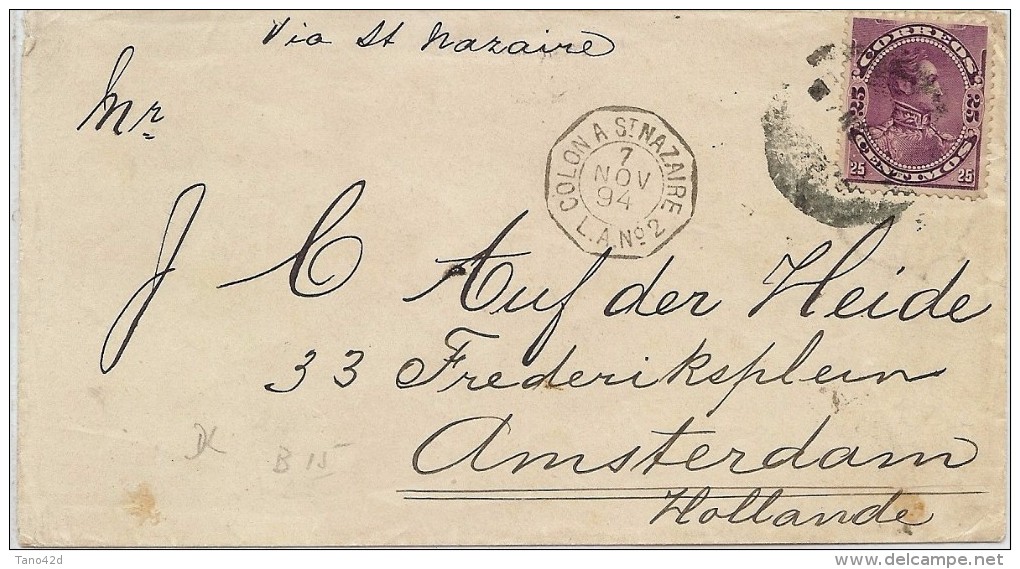 Via St Nazaire
CORREOS
25 25
CENTIMOS
25 25
Mr
COLON A ST NAZAIRE
7
NOV
94
L.A.No2
J C Auf der Heide
33 Frederiksplein
Amsterdam
Hollande
B 15
Tano42d
delcampe.net